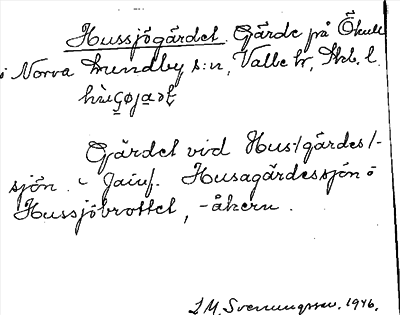 Hussjögärdet. Gärde på Ökull
i Norra Lundby s:n, Valle hr, Skb. l.
Gärdet vid Hus/gärdes/-
sjön. - Jämf. Husagärdessjön o
Hussjöbrottet, -åkern.
I M. Svenungsson. 1946.